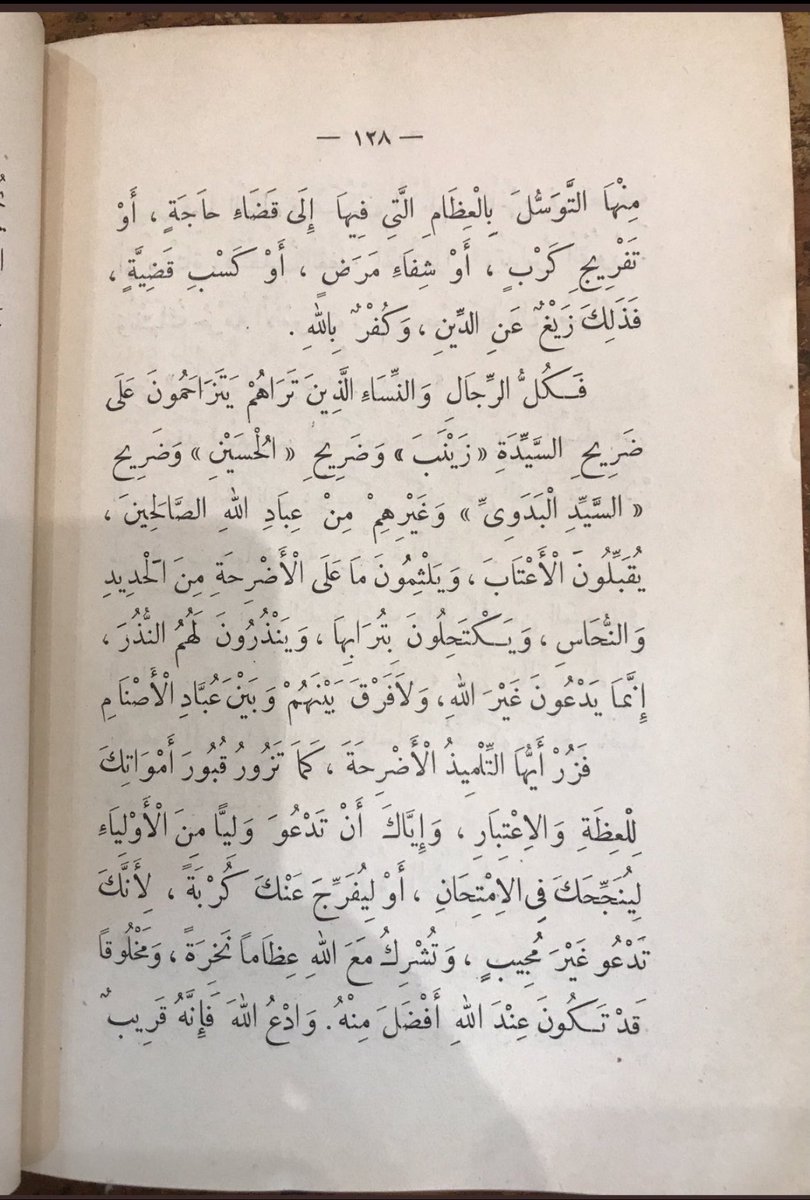 — ١٢٨ —
مِنْهَا التَّوَسُّلَ بِالْعِظَامِ الَّتِي فِيهَا إِلَى قَضَاءِ حاَجَةٍ ، أَوْ
تَفْرِيجِ كَرْبٍ ، أَوْ شِفَاءِ مَرَضٍ ، أَوْ كَسْبِ قَضِيَّةٍ ،
فَذَلِكَ زَيْغٌ عَنِ الدِّينِ ، وَكُفْرٌ بِاللهِ .
فَكُلُّ الرِّجَالِ وَالنِّسَاءِ الَّذِينَ تَرَاهُمْ يَتَزَاحَمُونَ عَلَى
ضَرِيحِ السَّيِّدَةِ « زَيْنَبَ » وَضَرِيحِ « الْحُسَيْنِ » وَضَرِيحِ
« السَّيِّدِ الْبَدَوِىِّ » وَغَيْرِهِمْ مِنْ عِبَادِ اللهِ الصَّالِحِينَ ،
يُقَبِّلُونَ الْأَعْتَابَ ، وَيَلْثِمُونَ مَا عَلَى الْأَضْرِحَةِ مِنَ الْحَدِيدِ
وَالنُّحَاسِ ، وَيَكْتَحِلُونَ بِتُرَابِهَا ، وَيَنْذُرُونَ لَهُمُ النُّذُرَ ،
إِنَّمَا يَدْعُونَ غَيْرَ اللهِ ، وَلاَفَرْقَ بَيْنَهُمْ وَبَيْنَ عُبَّادِ الْأَصْنَامِ
فَزُرْ أَيُّهَا التِّلْمِيذُ الْأَضْرِحَةَ ، كَمَا تَزُورُ قُبُورَ أَمْوَاتِكَ
لِلْعِظَةِ وَالِاعْتِبَارِ ، وَإِيَّاكَ أَنْ تَدْعُوَ وَلِيًّا مِنَ الْأَوْلِيَاءِ
لِيُنَجِّحَكَ فِي الِامْتِحَانِ ، أَوْ لِيُفَرِّجَ عَنْكَ كُرْبَةً ، لِأَنَّكَ
تَدْعُو غَيْرَ مُجِيبٍ ، وَتُشْرِكُ مَعَ اللهِ عِظَاماً نَخِرَةً ، وَمَخْلُوقاً
قَدْ تَكُونَ عِنْدَ اللهِ أَفْضَلَ مِنْهُ. وَادْعُ اللهَ فَإِنَّهُ قَرِيبٌ